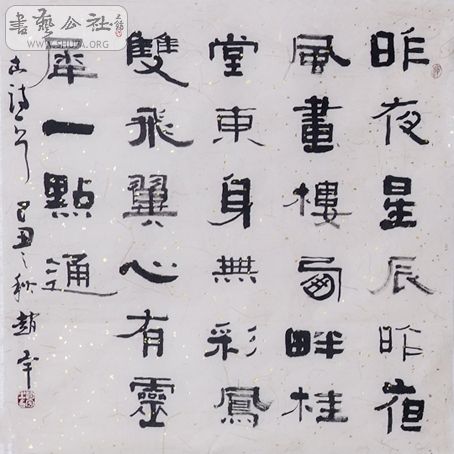 昨夜星辰昨夜
風畫樓西畔桂
堂東身無彩鳳
雙飛翼心有靈
犀一點通
古詩一首 己丑之秋 趙
書藝公社
WWW.SHUFA.ORG